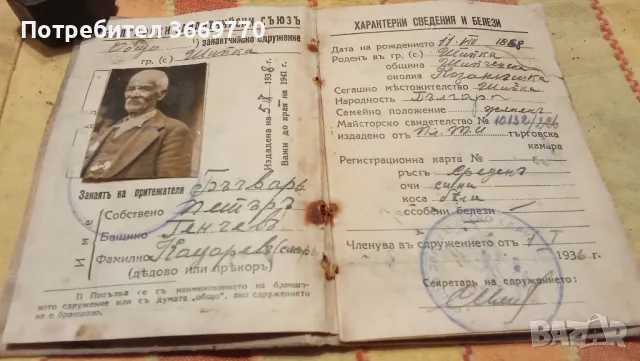 Потребител 3669770
СЪЮЗЪ
Общо
1) занаятчийско сдружение
гр. (с) Шипка
Издадена на 5.II 1938 г.
Важи до края на 1941 г.
Занаятъ на притежателя Бъчваръ
Име
Собствено Петъръ
Бащино Генчевъ
Фамилно
(дѣдово или прѣкоръ)
1) Посълва се съ наименованието на браншовото сдружение или съ думата „общо", ако сдружението не е браншово.
ХАРАКТЕРНИ СВЕДЕНИЯ И БЕЛЕЗИ
Дата на рождението 17 VIII 1868
Роденъ въ гр. (с) Шипка
община Шипченска
околия Казанлъшка
Сегашно мѣстожителство Шипка
Народность Българи
Семейно положение жененъ
Майсторско свидетелство № 10132/226
издадено отъ Пл. Т. И. търговска
камара
Регистрационна карта №
ръстъ среденъ
очи сини
коса бѣли
особани белези
Членува въ сдружението отъ 1 I
1936 г.
Секретарь на сдружението:
BAZAR
bg